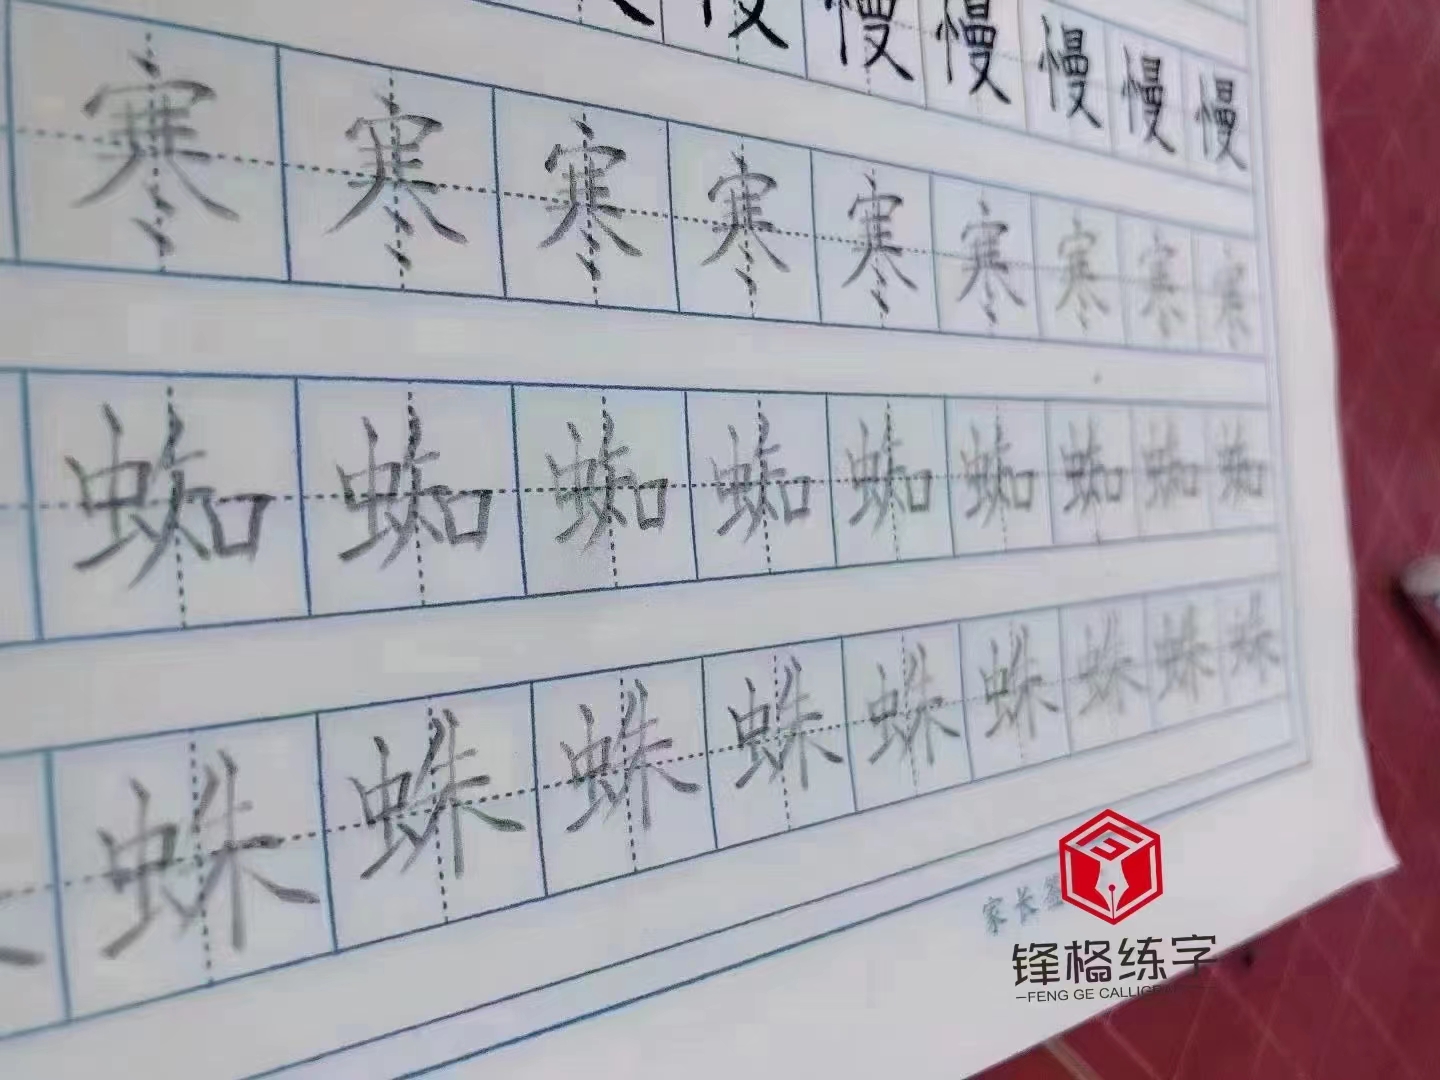 慢 慢 慢 慢 慢 慢
寒 寒 寒 寒 寒 寒 寒 寒 寒
蜘 蜘 蜘 蜘 蜘 蜘 蜘 蜘 蜘
蛛 蛛 蛛 蛛 蛛 蛛 蛛 蛛 蛛
家长签
锋格练字
FENG GE CALLIG